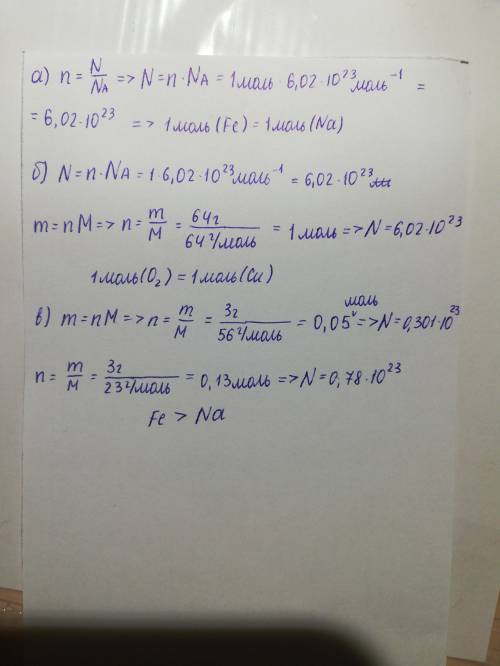 а) n = N/NA => N = n · NA = 1 моль · 6,02 · 10²³ моль⁻¹ =
= 6,02 · 10²³ => 1 моль (Fe) = 1 моль (Na)
б) N = n · NA = 1 · 6,02 · 10²³ моль⁻¹ = 6,02 · 10²³
m = nM => n = m/M = 64г/64 г/моль = 1 моль => N = 6,02 · 10²³
1 моль (O₂) = 1 моль (Cu)
в) m = nM => n = m/M = 3г/56 г/моль = 0,05 моль => N = 0,301 · 10²³
n = m/M = 3г/23 г/моль = 0,13 моль => N = 0,78 · 10²³
Fe > Na